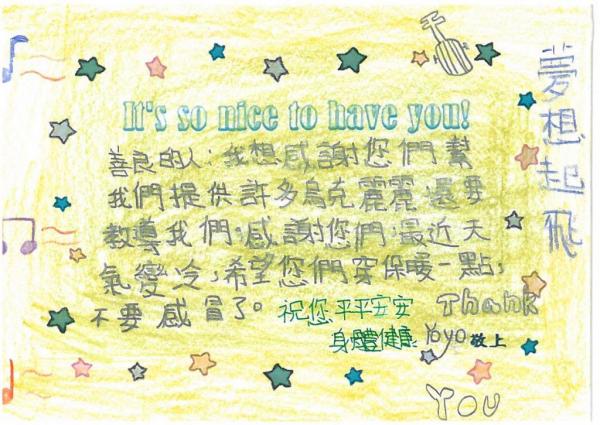 It's so nice to have you!
夢想起飛
善良的人:我想感謝您們幫
我們提供許多烏克麗麗,還要
教導我們,感謝您們,最近天
氣變冷,希望您們穿保暖一點,
不要感冒了。祝您平平安安
身體健康
Yoyo敬上
Thank
You